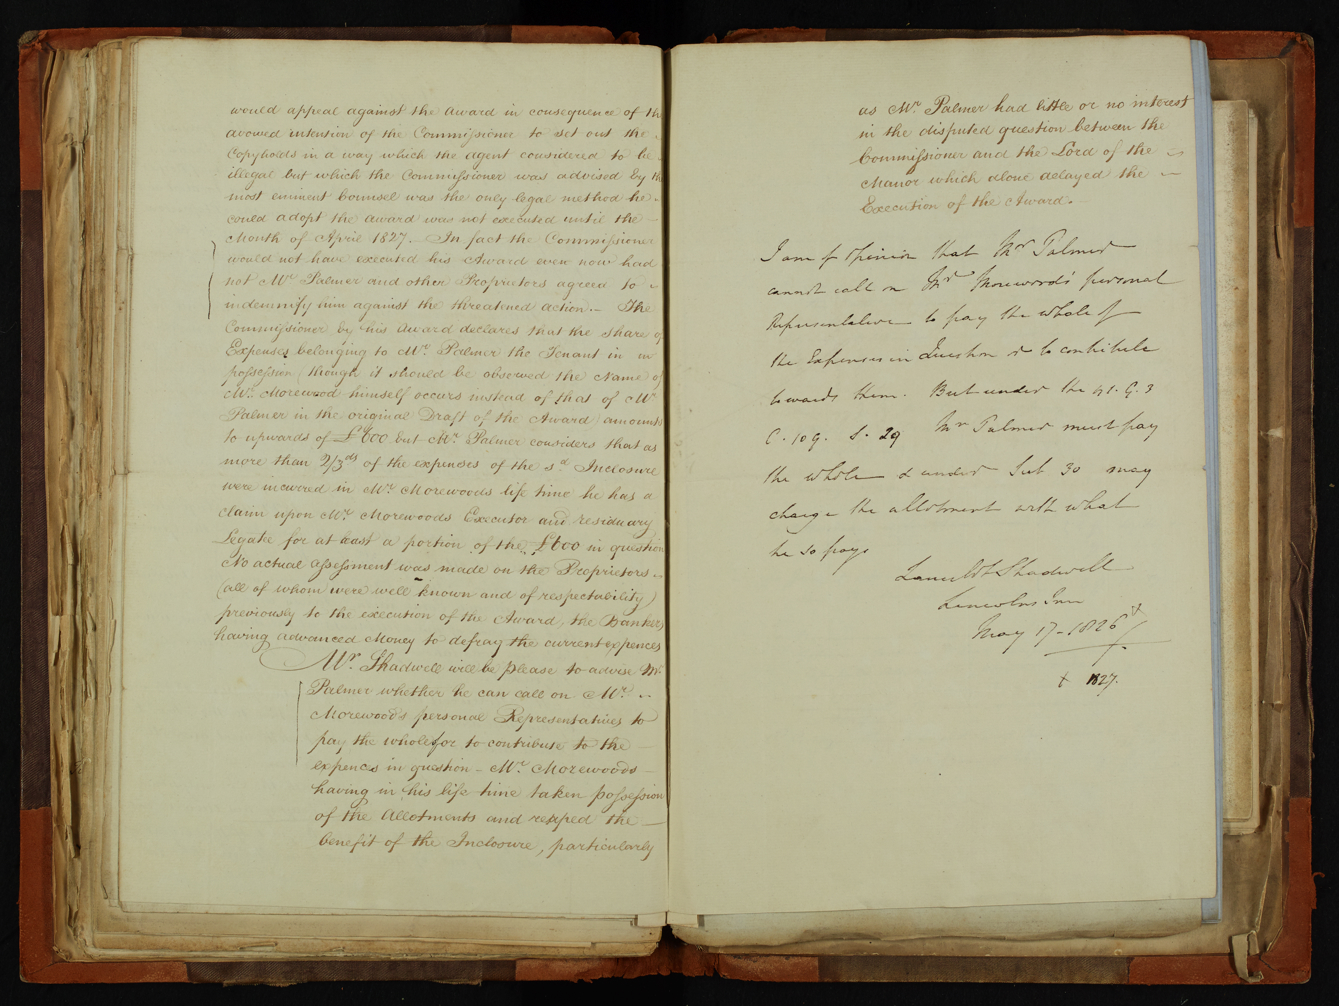 would appeal against the Award in consequence of th
avowed intention of the Commissioner to set out the
Copyholds in a way which the agent considered to be
illegal but which the Commissioner was advised by th
most eminent Counsel was the only legal method he
could adopt the award was not executed until the
Month of April 1827. In fact the Commissioner
would not have executed his Award even now had
not Mr. Palmer and other Proprietors agreed to
indemnify him against the threatened action. The
Commissioner by his Award declares that the share of
Expenses belonging to Mr. Palmer the Tenant in
possession (though it should be observed the Name of
Mr. Morewood himself occurs instead of that of Mr
Palmer in the original Draft of the Award) amounts
to upwards of £600 but Mr. Palmer considers that as
more than 2/3ds of the expenses of the sd. Inclosure
were incurred in Mr. Morewoods life time he has a
claim upon Mr. Morewoods Executor and residuary
Legatee for at least a portion of the £600 in question
No actual assessment was made on the Proprietors
(all of whom were well known and of respectability)
previously to the execution of the Award, the Bankers
having advanced Money to defray the current expences
Mr. Shadwell will be please to advise Mr.
Palmer whether he can call on Mr.
Morewoods personal Representatives to
pay the whole for to contribute to the
expences in question - Mr. Morewoods
having in his life time taken possession
of the Allotments and reaped the
benefit of the Inclosure, particularly
as Mr. Palmer had little or no interest
in the disputed question between the
Commissioner and the Lord of the
Manor which alone delayed the
Execution of the Award.
I am of Opinion that Mr Palmer
cannot call on Mr Morewood's personal
Representative to pay the whole of
the Expenses in Question or to contribute
towards them. But under the 41. G. 3
C. 109. S. 29 Mr Palmer must pay
the whole & under Sect 30 may
charge the allotment with what
he so pays
Lancelot Shadwell
Lincolns Inn
May 17 - 1826 +
+ 1827.